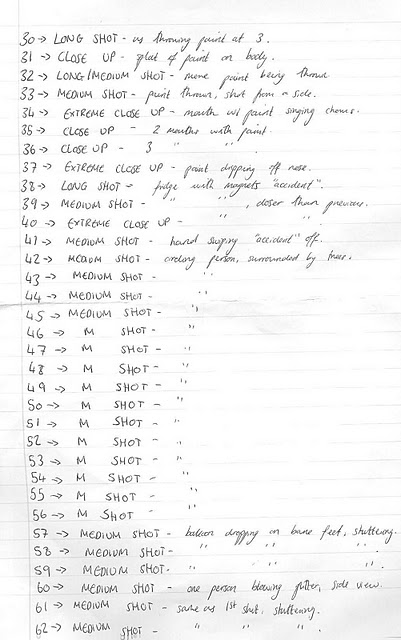 30 → LONG SHOT - us throwing paint at 3.
31 → CLOSE UP - splat of paint on body.
32 → LONG/MEDIUM SHOT - more paint being thrown
33 → MEDIUM SHOT - paint thrown, shot from a side.
34 → EXTREME CLOSE UP - mouth w/ paint singing chorus.
35 → CLOSE UP - 2 mouths with paint.
36 → CLOSE UP - 3 " " ".
37 → EXTREME CLOSE UP - paint dripping off nose.
38 → LONG SHOT - fridge with magnets "accident".
39 → MEDIUM SHOT - " " , closer than previous.
40 → EXTREME CLOSE UP - " " .
41 → MEDIUM SHOT - hand swiping "accident" off.
42 → MEDIUM SHOT - circling person, surrounded by trees.
43 → MEDIUM SHOT - "
44 → MEDIUM SHOT - "
45 → MEDIUM SHOT - "
46 → M SHOT - "
47 → M SHOT - "
48 → M SHOT - "
49 → M SHOT - "
50 → M SHOT - "
51 → M SHOT - "
52 → M SHOT - "
53 → M SHOT - "
54 → M SHOT - "
55 → M SHOT - "
56 → M SHOT - "
57 → MEDIUM SHOT - balloon dropping on bare feet, stuttering.
58 → MEDIUM SHOT - " " " .
59 → MEDIUM SHOT. " " " .
60 → MEDIUM SHOT - one person blowing glitter, side view.
61 → MEDIUM SHOT - same as 1st shot, stuttering.
62 → MEDIUM SHOT - " " " .